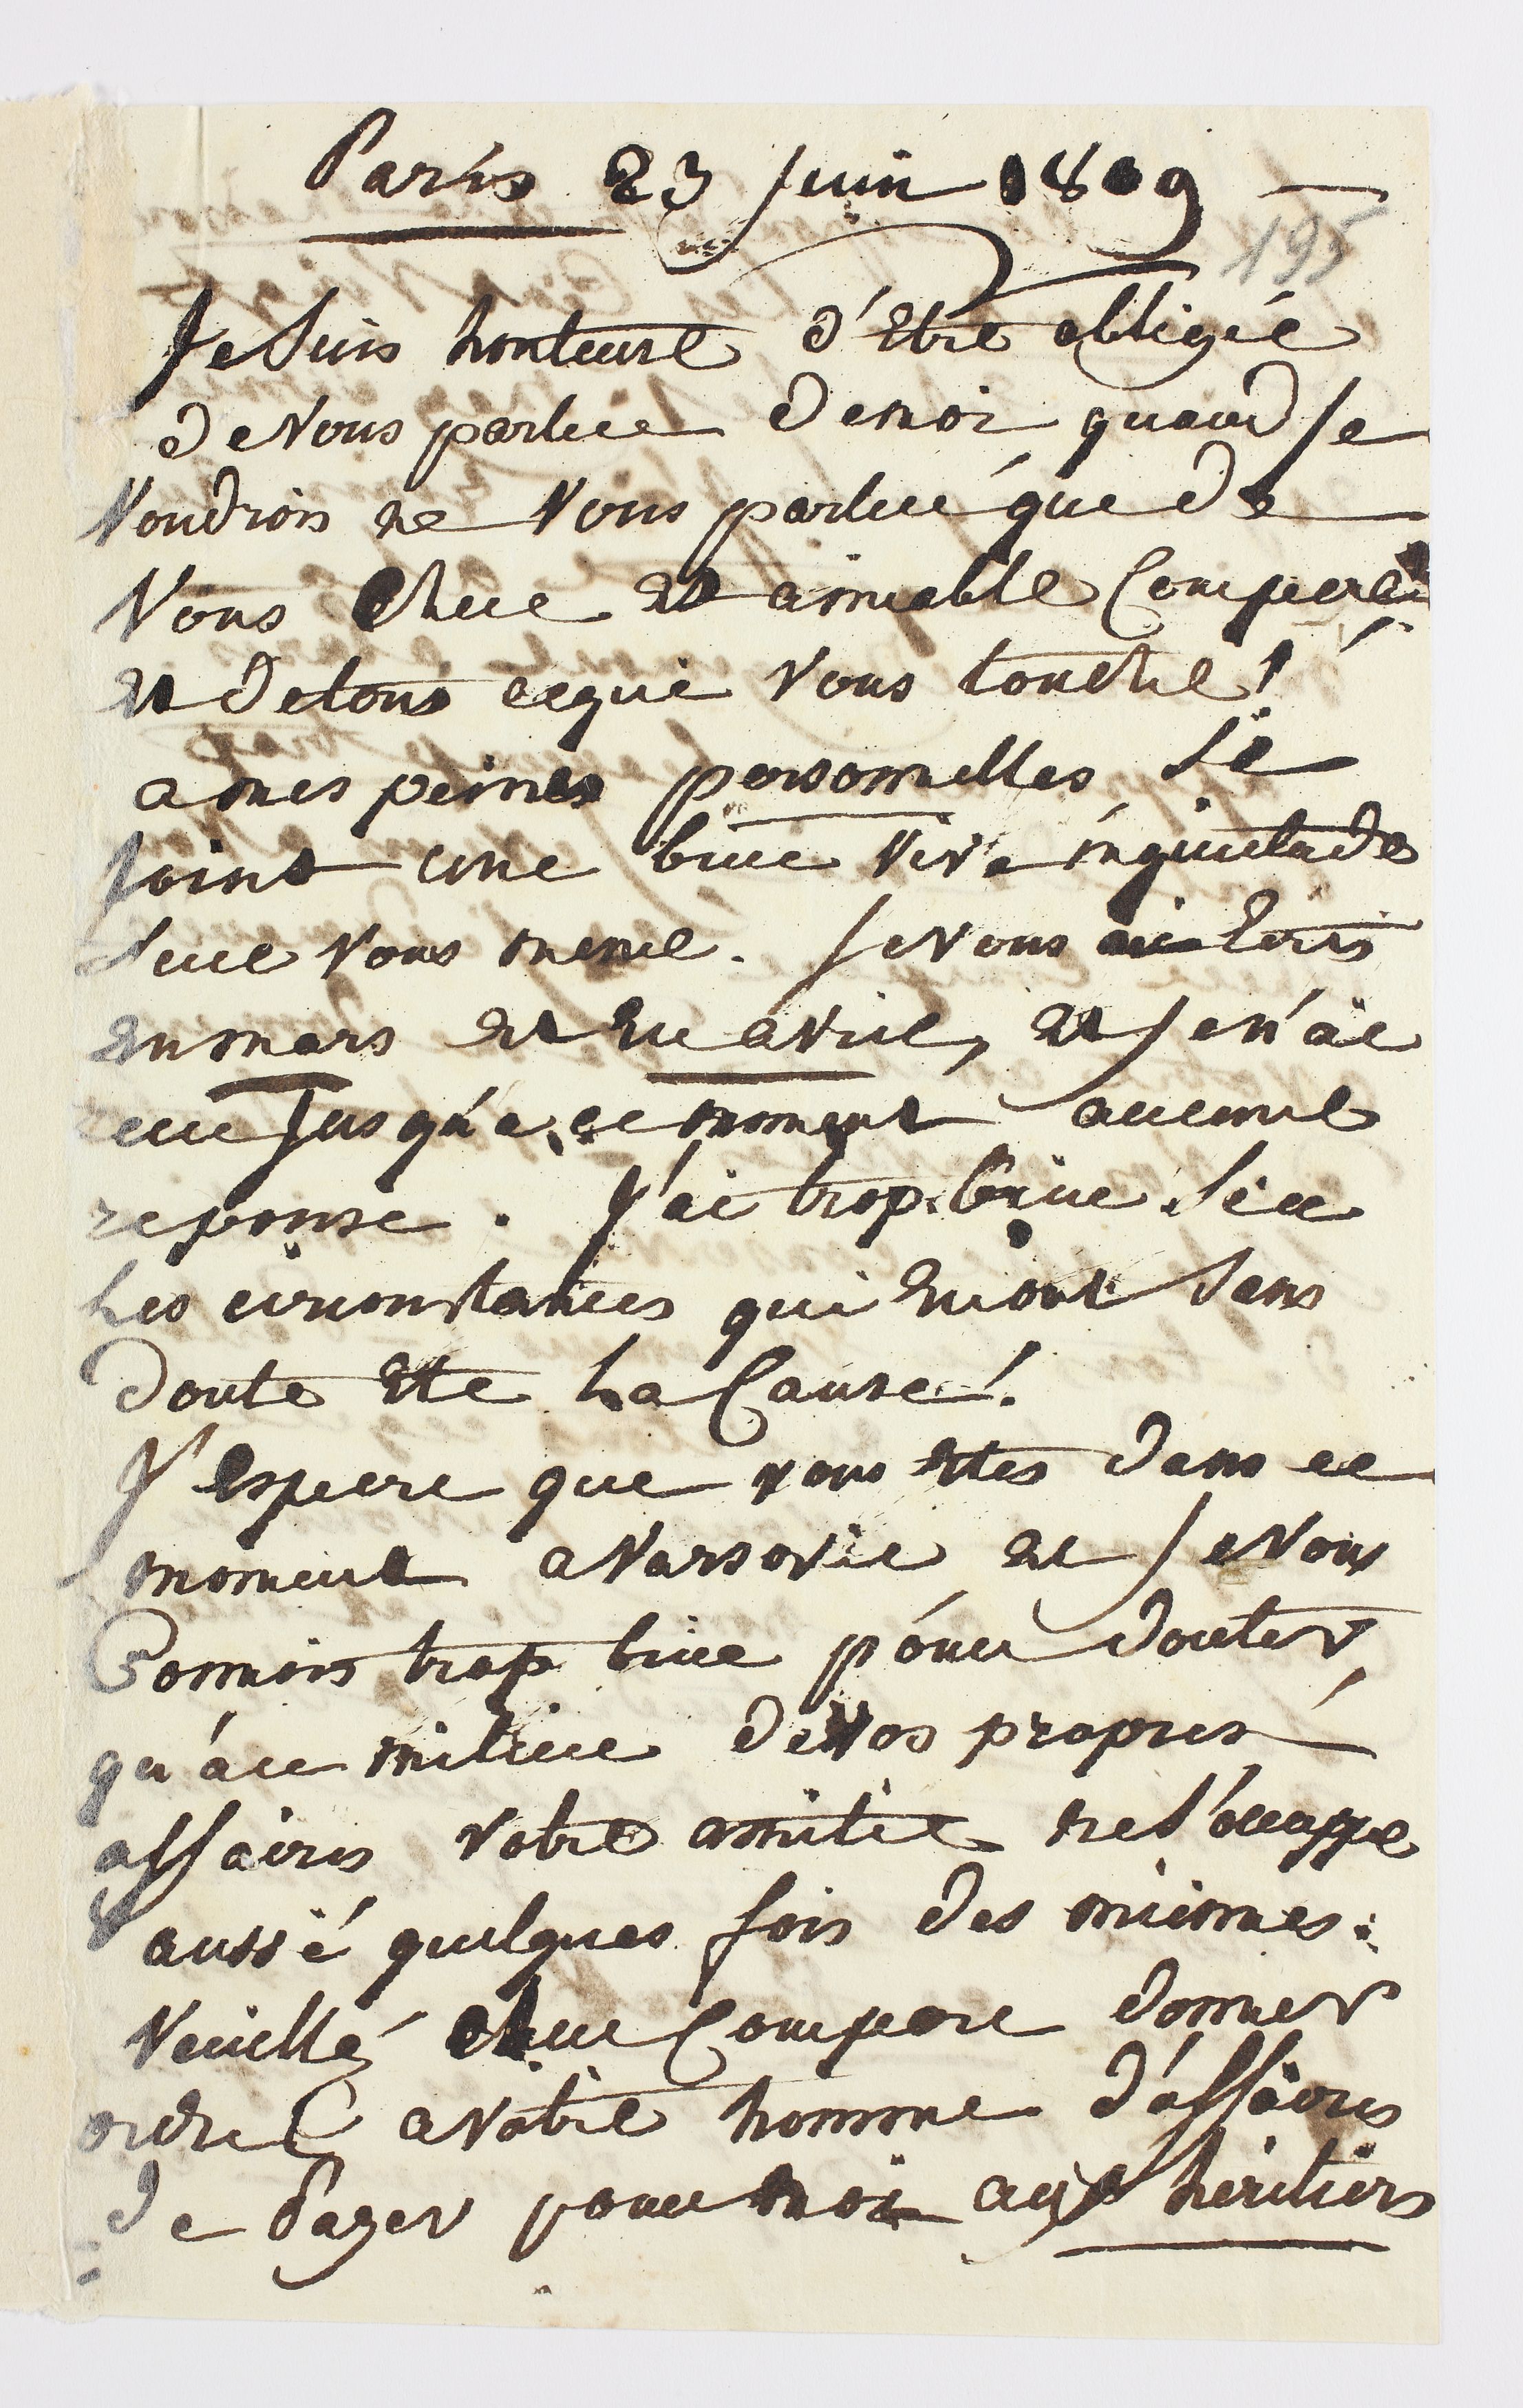 Paris 23 Juin 1809 —
195
Je suis honteuse d'Etre obligée
de Vous parler de moi quand Je
Voudrois ne Vous parler que de
Vous Cher et aimable Compere
et de tous ce qui Vous touche!
a mes peines personnelles se
Joint une bien Vive inquietude
sur Vous meme. Je Vous ai Ecris
en mars et En avril, et Je n'ai
reçu Jusqu'a ce moment aucune
reponse. J'ai trop bien sçu
Les circonstances qui En ont sans
doute Eté La Cause!
J'Espere que vous etes dans ce
moment a Varsovie et Je Vous
Connois trop bien pour douter,
qu'au milieu de Vos propres
affaires Votre amitié ne s'occuppe
aussi quelques fois des miennes:
Veuillé cher Compere donner
ordre a Votre homme d'affaires
de Payer pour moi aux héritiers